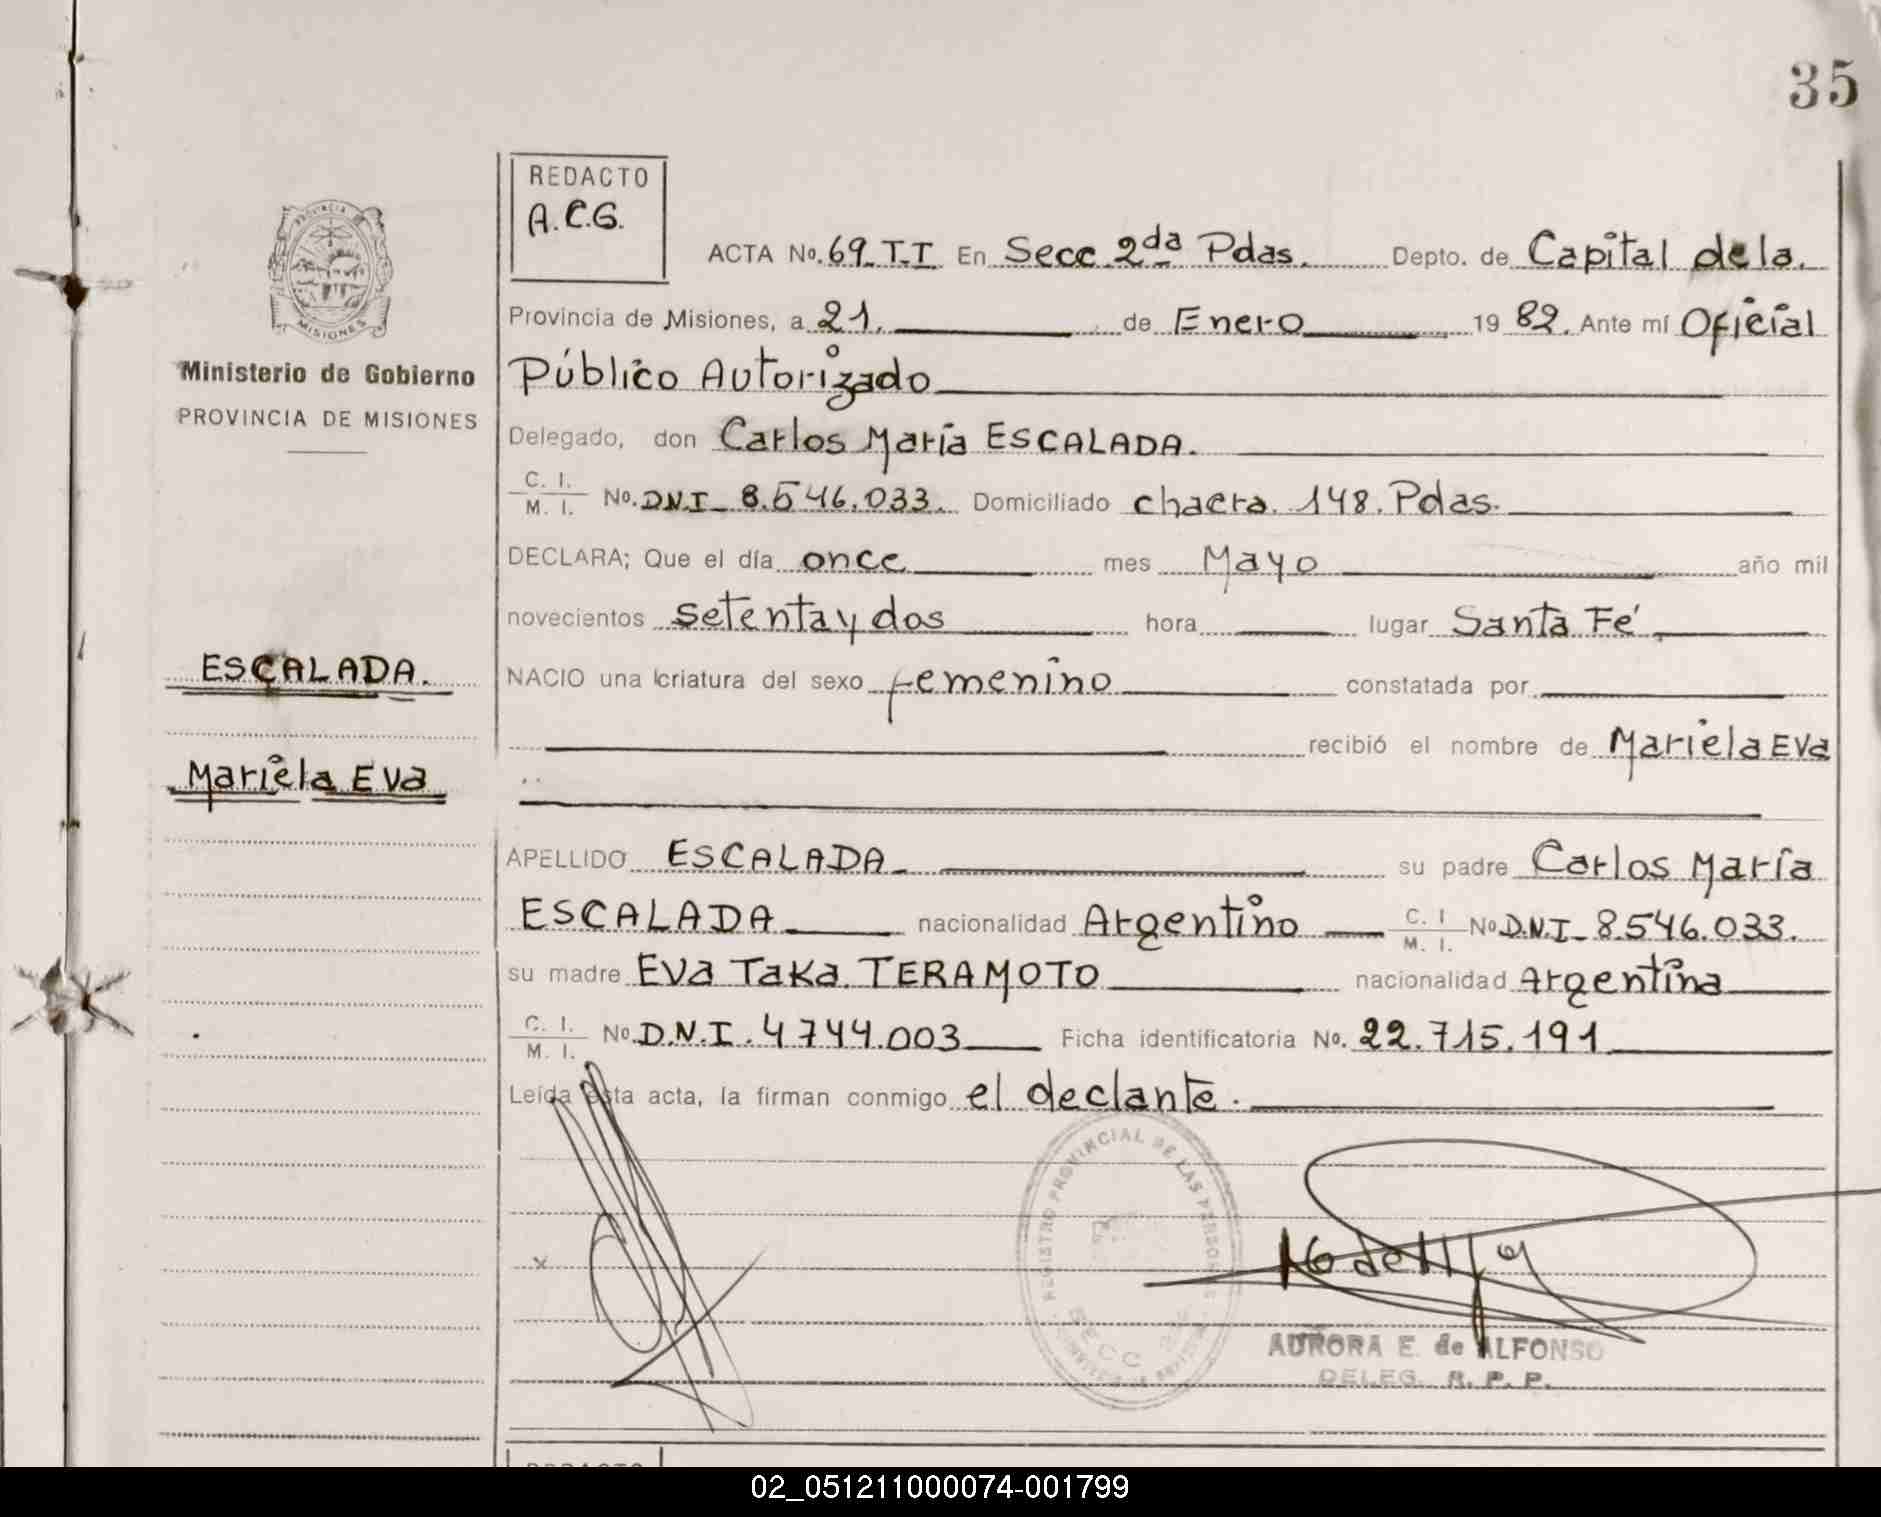 35
REDACTO
A.C.G.
ACTA No. 69_T.I En Secc 2da Pdas. Depto. de Capital de la.
Provincia de Misiones, a 21. de Enero 19 82. Ante mí Oficial
Público Autorizado
Delegado, don Carlos María ESCALADA.
C. I.
M. I. No. D.N.I_ 8.546.033. Domiciliado chacra. 148. Pdas.
DECLARA; Que el día once mes Mayo año mil
novecientos setenta y dos hora lugar Santa Fé
NACIO una criatura del sexo femenino constatada por
recibió el nombre de Mariela Eva
APELLIDO ESCALADA su padre Carlos María
ESCALADA nacionalidad Argentino C. I. M. I. No D.N.I_ 8.546.033.
su madre Eva Taka TERAMOTO nacionalidad Argentina
C. I.
M. I. No. D.N.I. 4744.003 Ficha identificatoria No. 22.715.191
Leída esta acta, la firman conmigo el declante.
PROVINCIA DE
MISIONES
Ministerio de Gobierno
PROVINCIA DE MISIONES
ESCALADA.
Mariela Eva
x
REGISTRO PROVINCIAL DE LAS PERSONAS
SECC
AURORA E. de ALFONSO
DELEG. R. P. P.
REDACTO
02_051211000074-001799